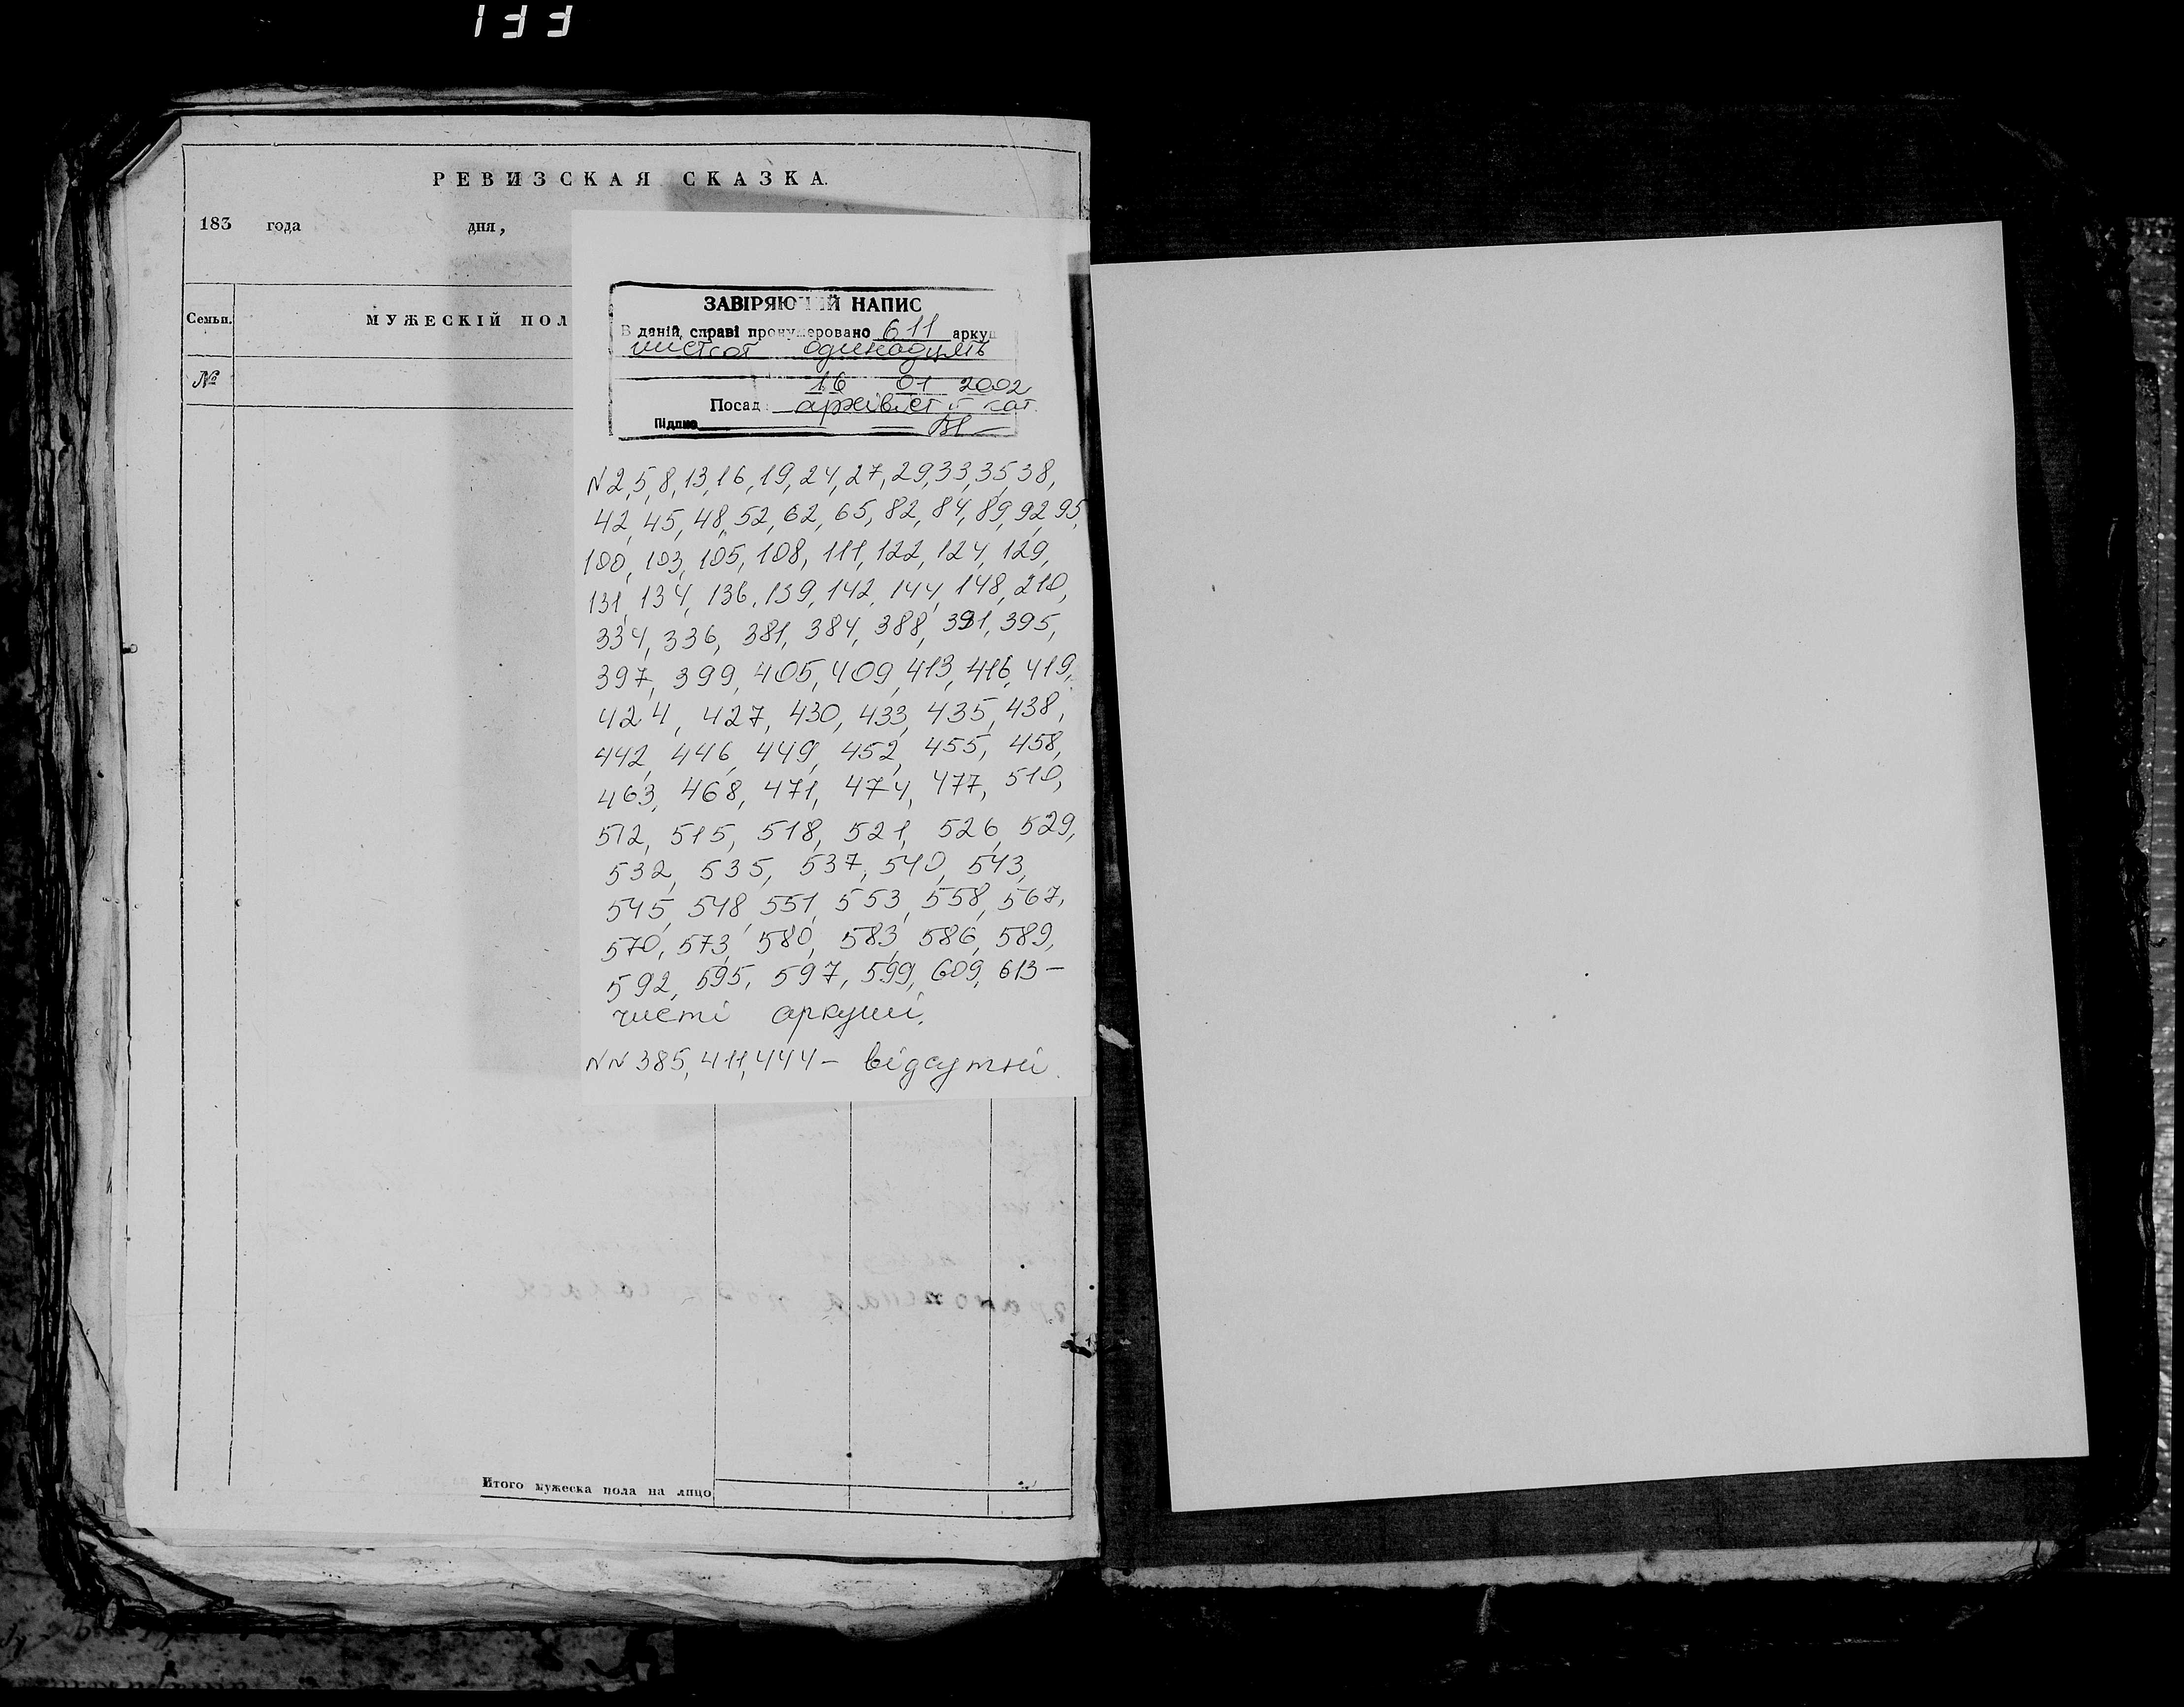 133
РЕВИЗСКАЯ СКАЗКА.
183 года дня,
Семьи. МУЖЕСКІЙ ПОЛ
№
ЗАВІРЯЮЧИЙ НАПИС
В даній справі пронумеровано 611 аркуш
шістсот одинадцять
16 01 2002
Посада архівіст II кат.
Підпис
N 2, 5, 8, 13, 16, 19, 24, 27, 29, 33, 35, 38,
42, 45, 48, 52, 62, 65, 82, 84, 89, 92, 95,
100, 103, 105, 108, 111, 122, 124, 129,
131, 134, 136, 139, 142, 144, 148, 210,
334, 336, 381, 384, 388, 391, 395,
397, 399, 405, 409, 413, 416, 419,
424, 427, 430, 433, 435, 438,
442, 446, 449, 452, 455, 458,
463, 468, 471, 474, 477, 510,
512, 515, 518, 521, 526, 529,
532, 535, 537, 540, 543,
545, 548, 551, 553, 558, 567,
570, 573, 580, 583, 586, 589,
592, 595, 597, 599, 609, 613 –
чисті аркуші.
NN 385, 411, 444 – відсутні.
Итого мужеска пола на лицо